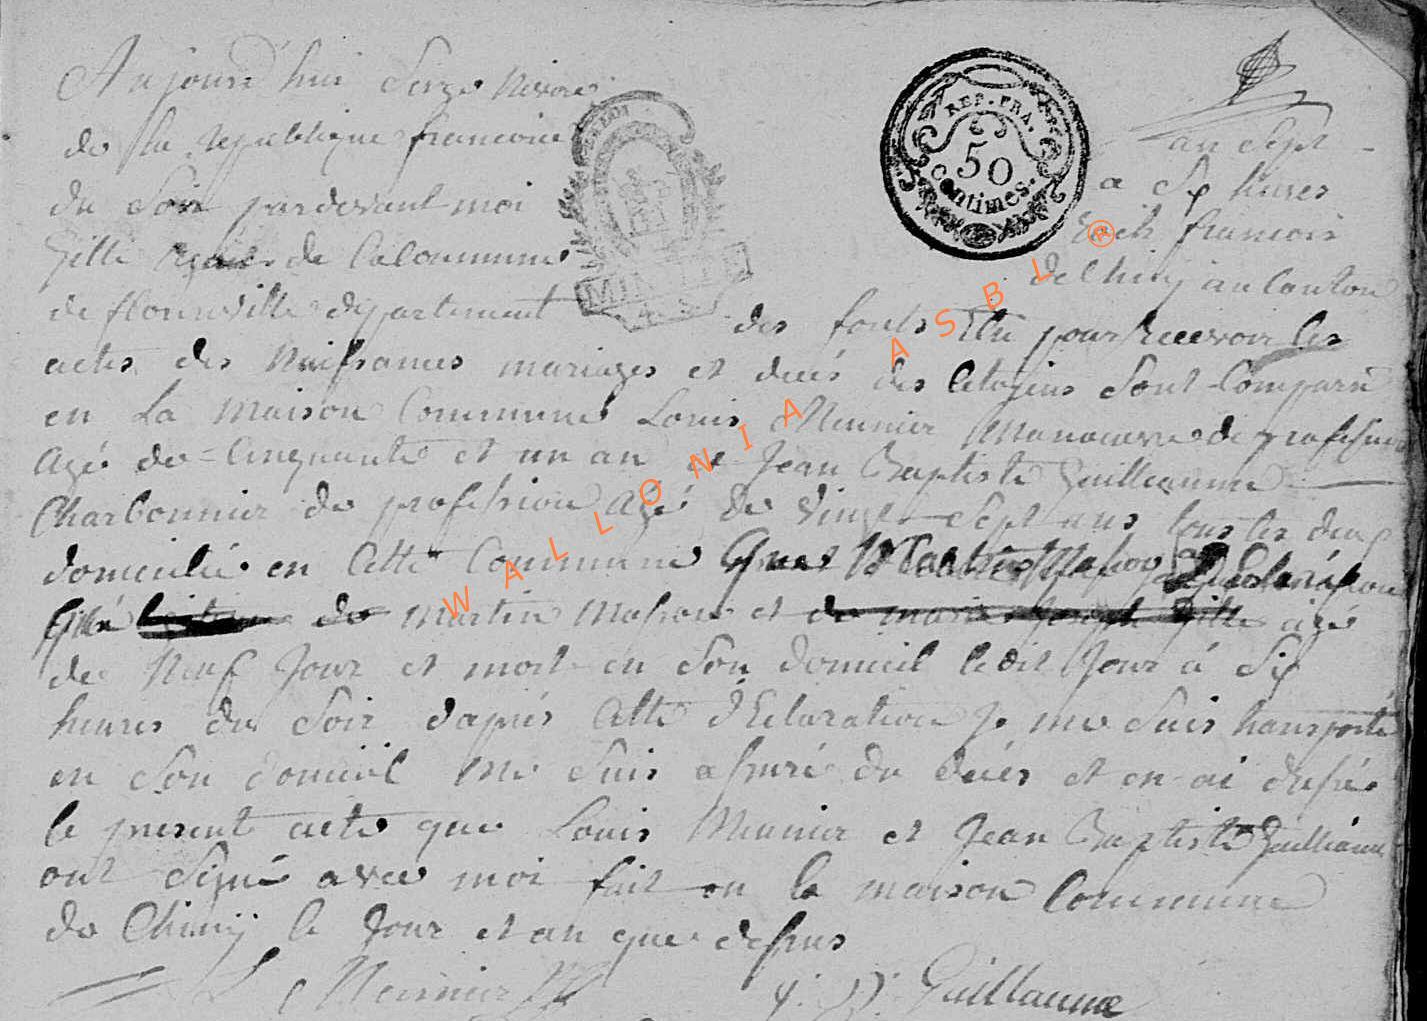 Aujourd'hui Seize Nivose an Sept
de la republique francoise a Six heures
du Soir pardevant moi francois
Gille de la Commune de Chiny au Canton
de florenville departement des forets Elu pour Recevoir les
actes des Naissances mariages et deces des Citoyens Sont Comparu
en La Maison Commune Louis Meunier Manoeuvre de profession
Agé de Cinquante et un an et Jean Baptiste Guilleaume
Charbonnier de profession Agé de Vingt Sept ans tous les deux
domicilié en Cette Commune
de Martin et de marie Joseph Gille agé
de Neuf Jour et mort en Son domicil ledit Jour á Six
heures du Soir daprés Cette déClaration Je me Suis transporté
en Son domicil me Suis assuré du decés et en ai dressé
le present acte que Louis Meunier et Jean Baptiste Guilleaume
ont Signé avec moi fait en la maison Commune
de Chiny le Jour et an que dessus
L Meunier J. B. Guillaume
REP. FRA.
50
centimes.
WALLONIA ASBL ®